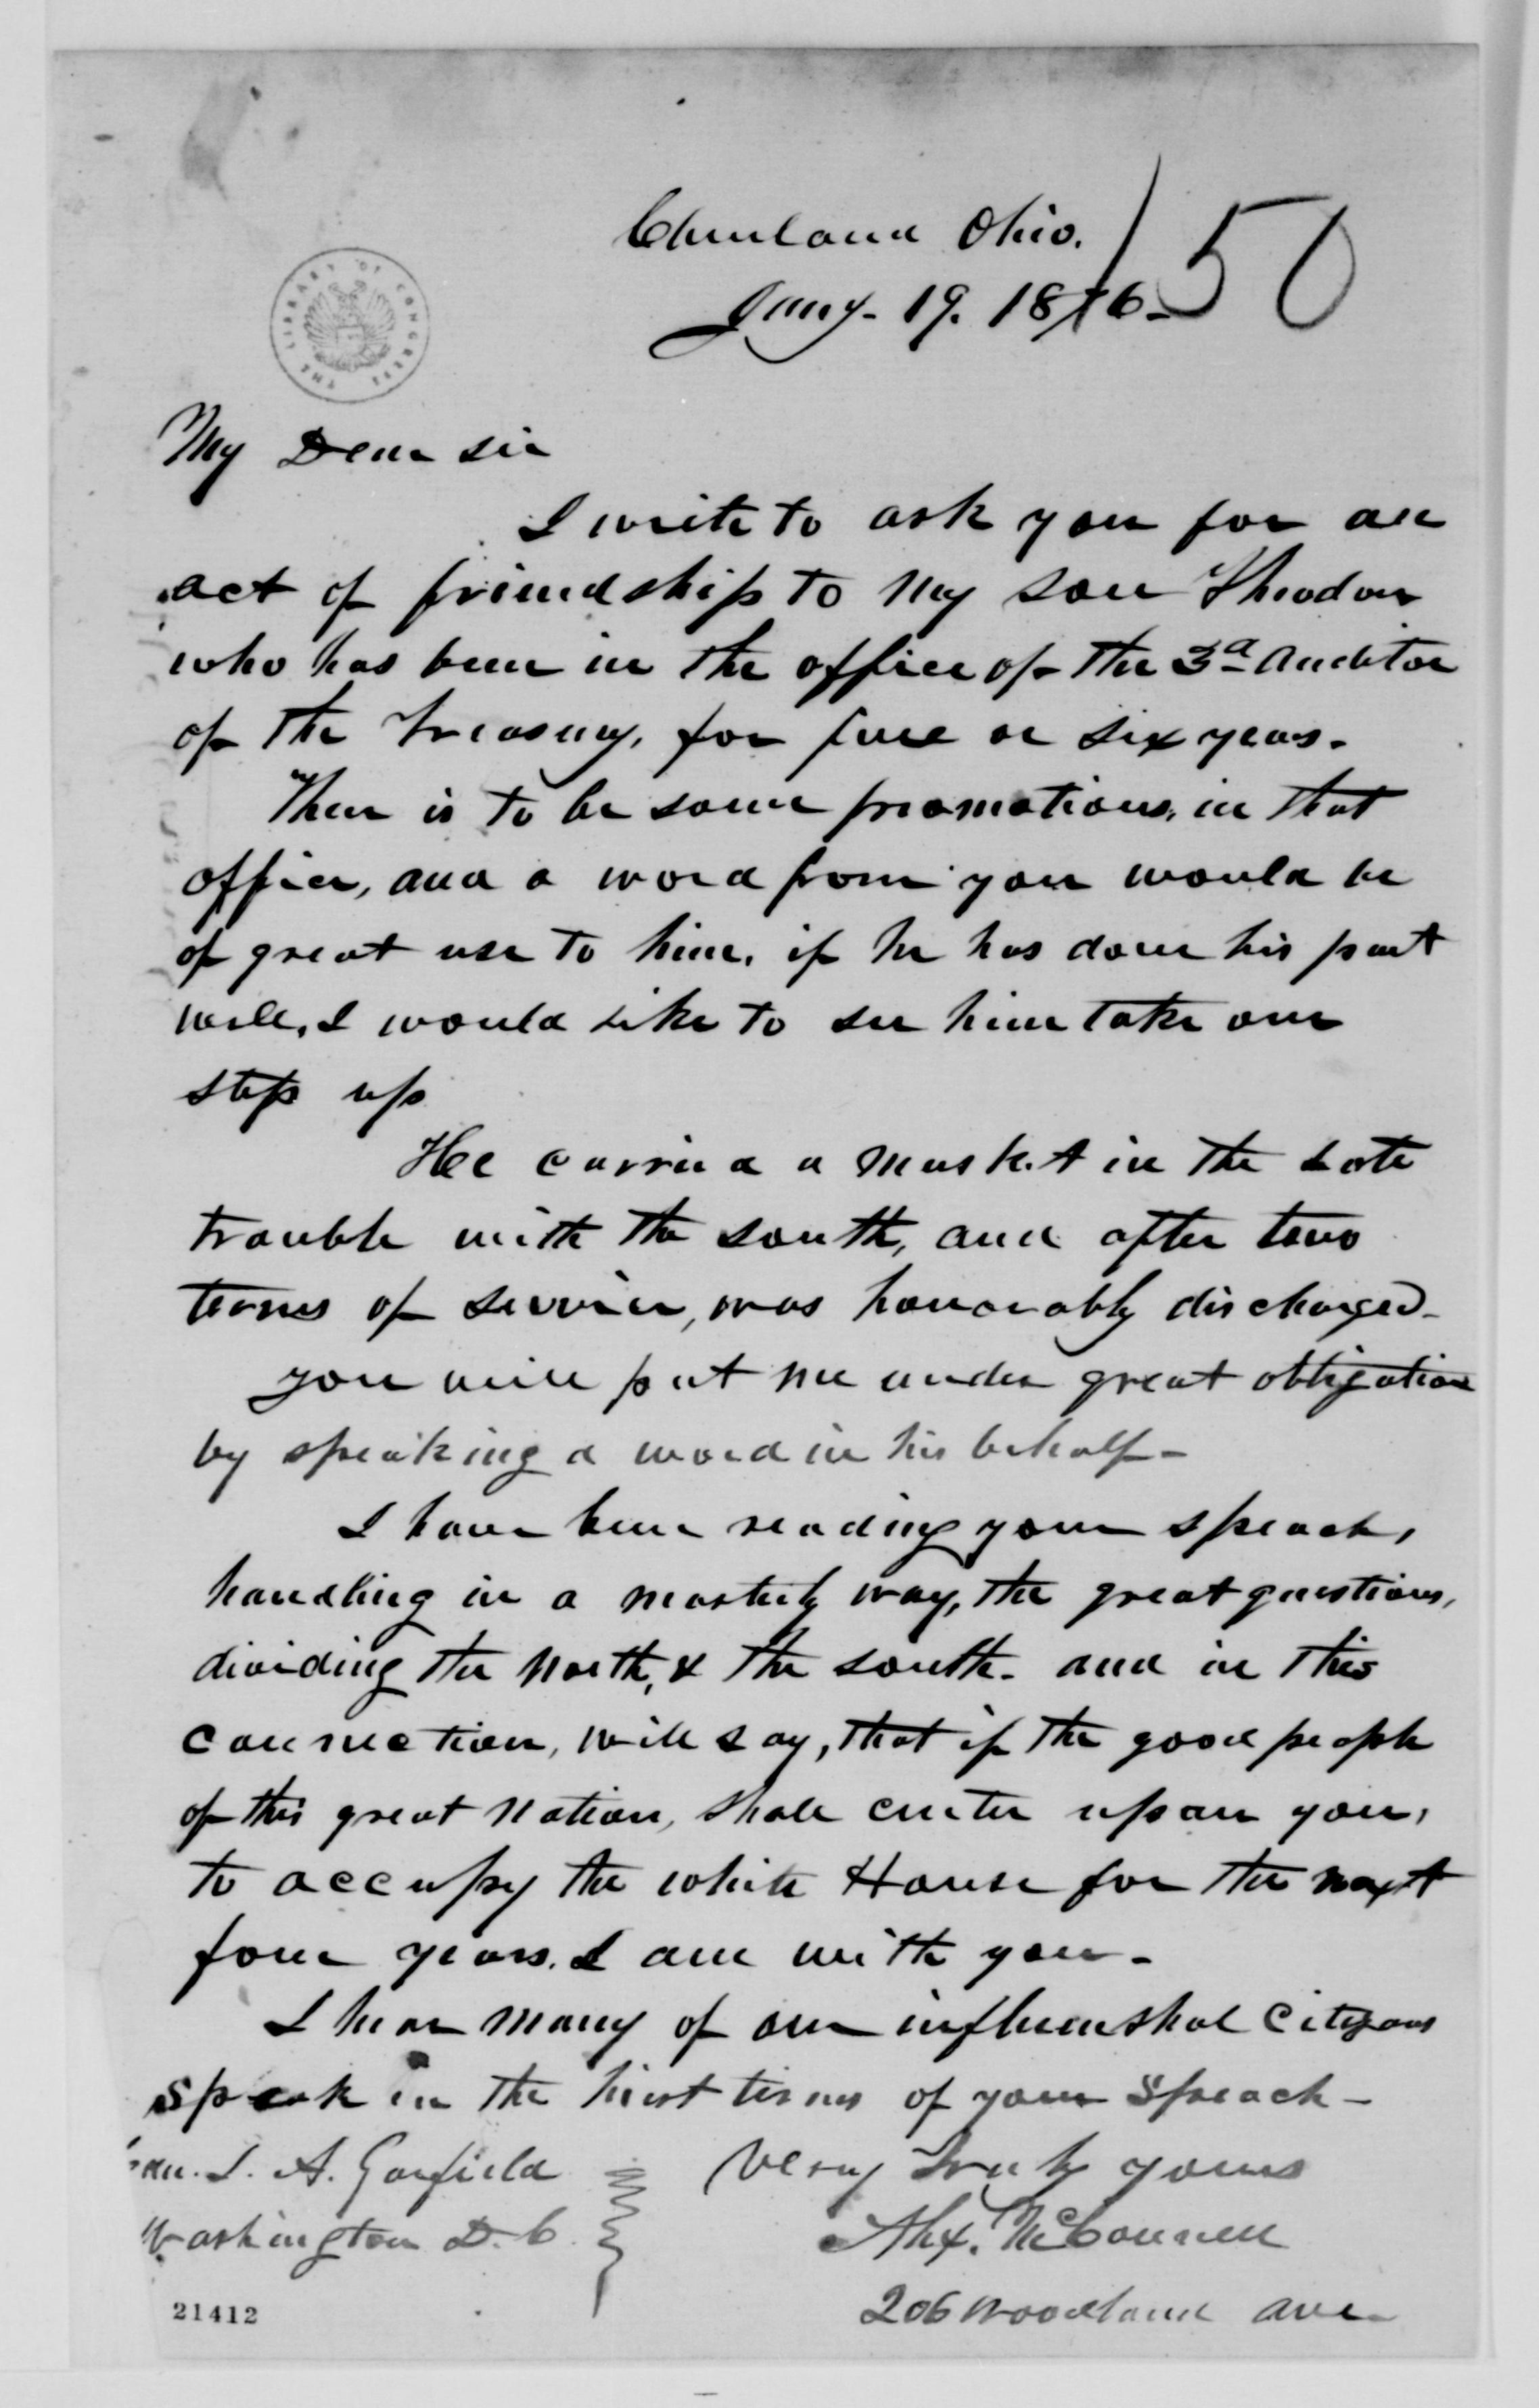 Cleveland Ohio.
Jany. 19. 1876-
150
THE LIBRARY OF CONGRESS
My Dear Sir
I write to ask you for an
act of friendship to my son Theodore
who has been in the office of the 3d Auditor
of the Treasury, for five or six years.
There is to be some promotions, in that
office, and a word from you would be
of great use to him. if he has done his part
well, I would like to see him take one
step up
He carried a musket in the late
trouble with the south, and after two
terms of service, was honorably discharged-
you will put me under great obligation
by speaking a word in his behalf-
I have been reading your speach,
handling in a masterly way, the great questions,
dividing the North, & the south- and in this
connection, will say, that if the good people
of this great Nation, shall center upon you,
to occupy the white House for the next
four years. I am with you-
I hear many of our influenshal Citizans
speak in the hiest terms of your Speach-
Gen. J. A. Garfield
Washington D.C.
Very Truly yours
Alex. McConnell
206 Woodland Ave-
21412